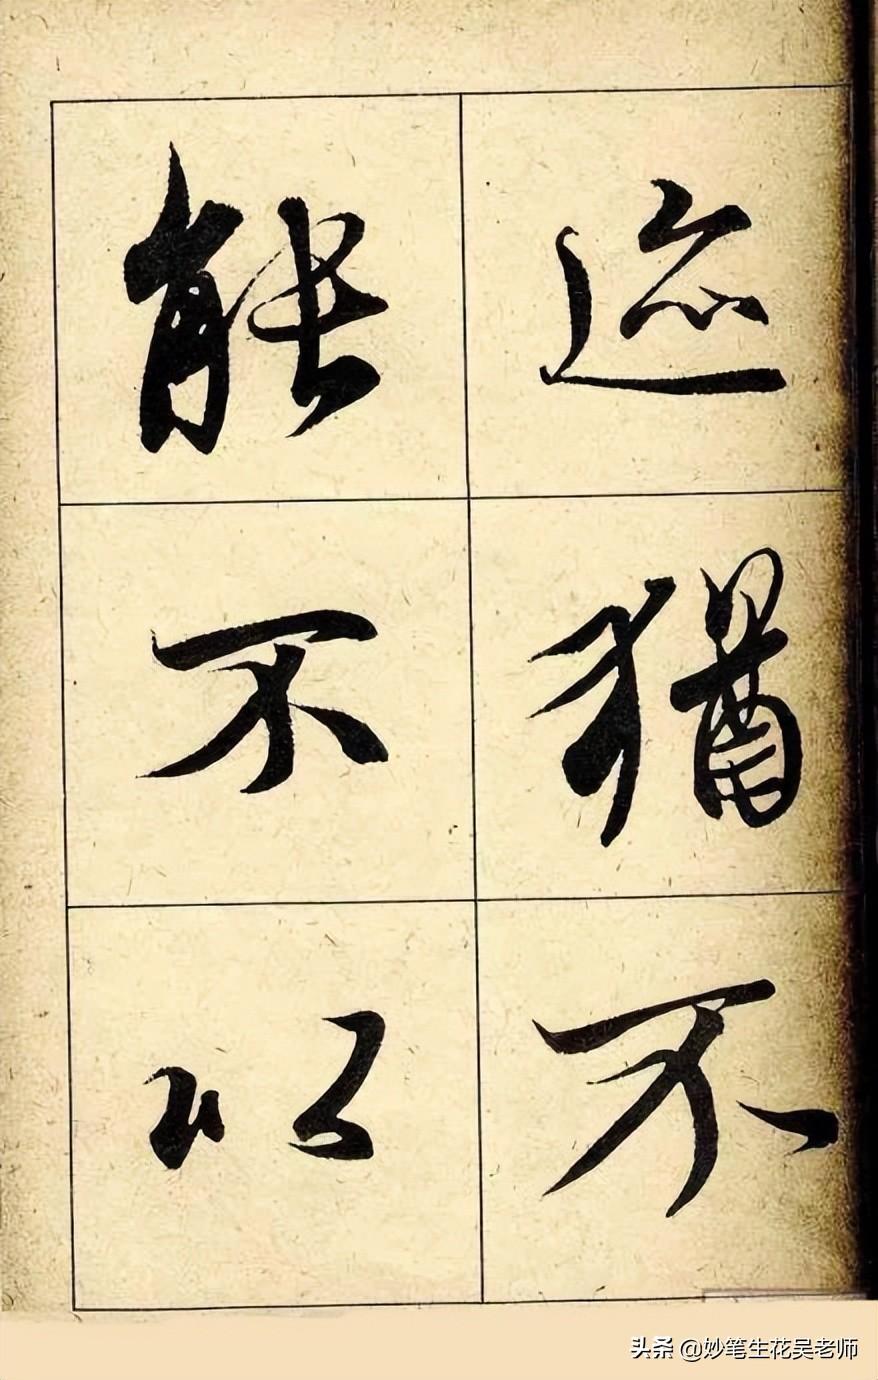 迹猶不
能不以
头条 @妙笔生花吴老师